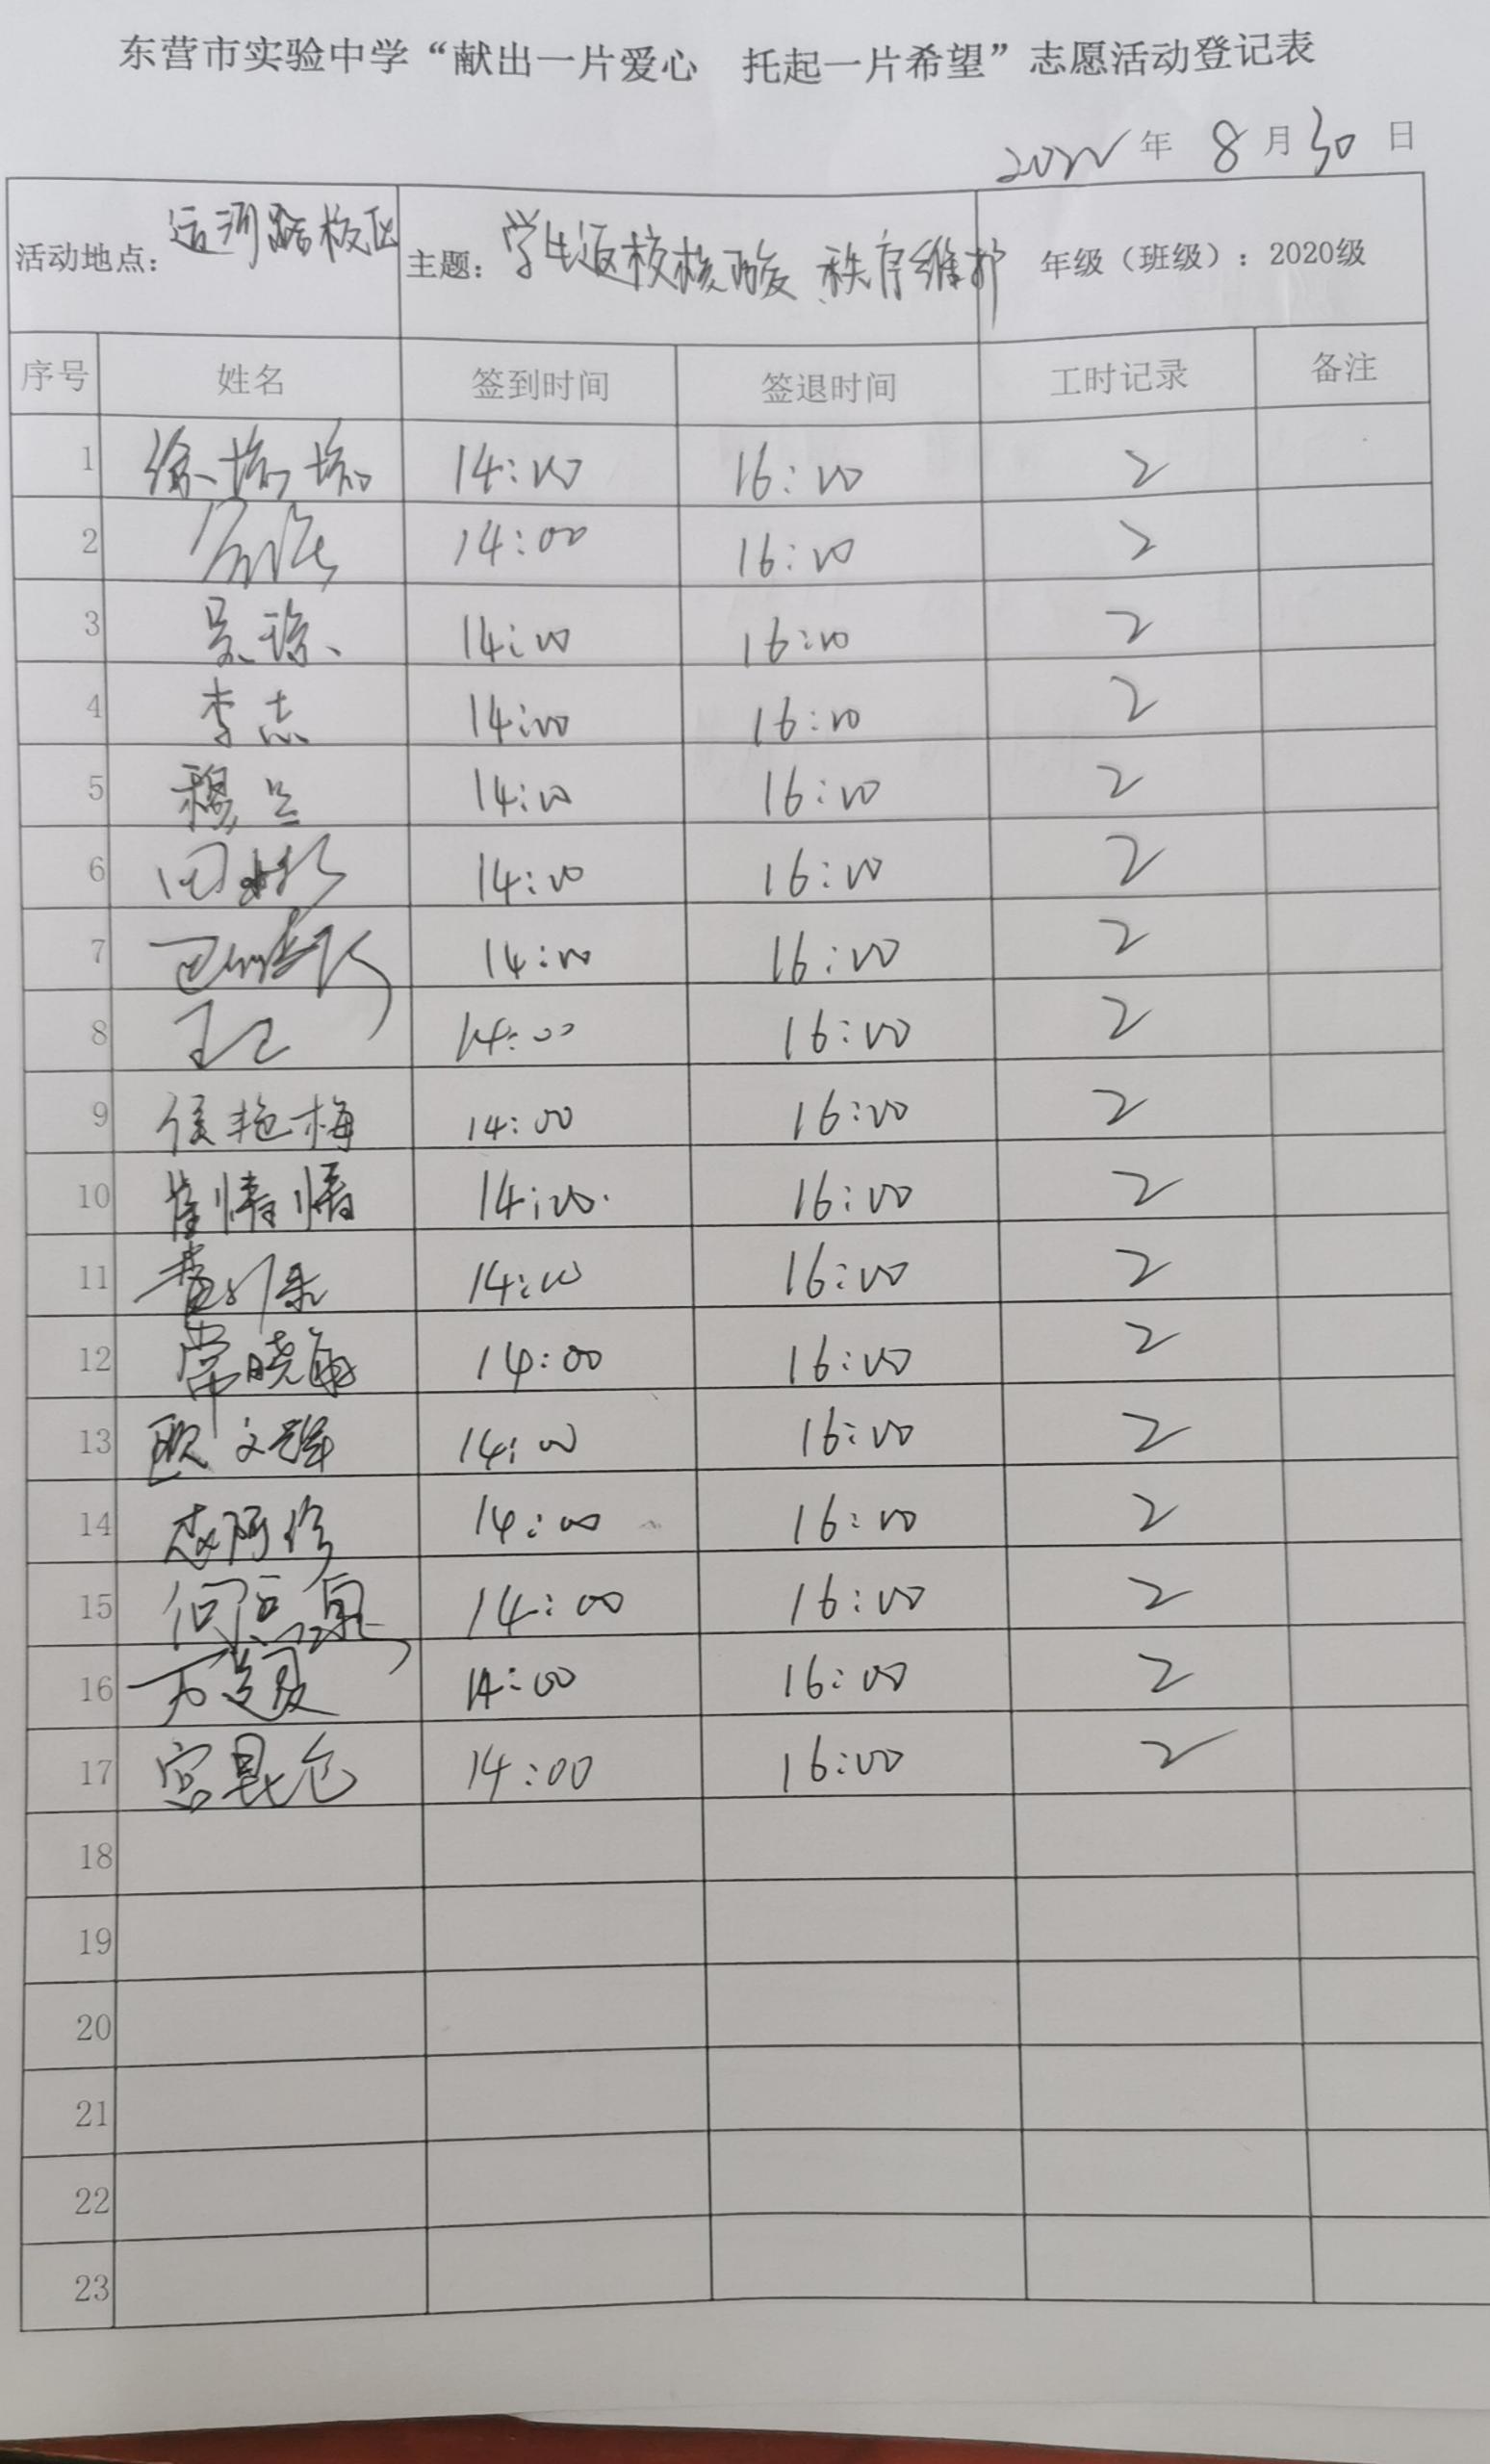 东营市实验中学“献出一片爱心 托起一片希望”志愿活动登记表
2022年 8月30日
活动地点：运河路校区 主题：学生返校核酸 秩序维护 年级（班级）：2020级
序号 姓名 签到时间 签退时间 工时记录 备注
1 徐培培 14:00 16:00 2
2 14:00 16:00 2
3 吴琼 14:00 16:00 2
4 李志 14:00 16:00 2
5 穆兰 14:00 16:00 2
6 田 14:00 16:00 2
7 14:00 16:00 2
8 14:00 16:00 2
9 侯艳梅 14:00 16:00 2
10 崔倩倩 14:00 16:00 2
11 14:00 16:00 2
12 常晓 14:00 16:00 2
13 文 14:00 16:00 2
14 阿 14:00 16:00 2
15 14:00 16:00 2
16 14:00 16:00 2
17 14:00 16:00 2
18
19
20
21
22
23